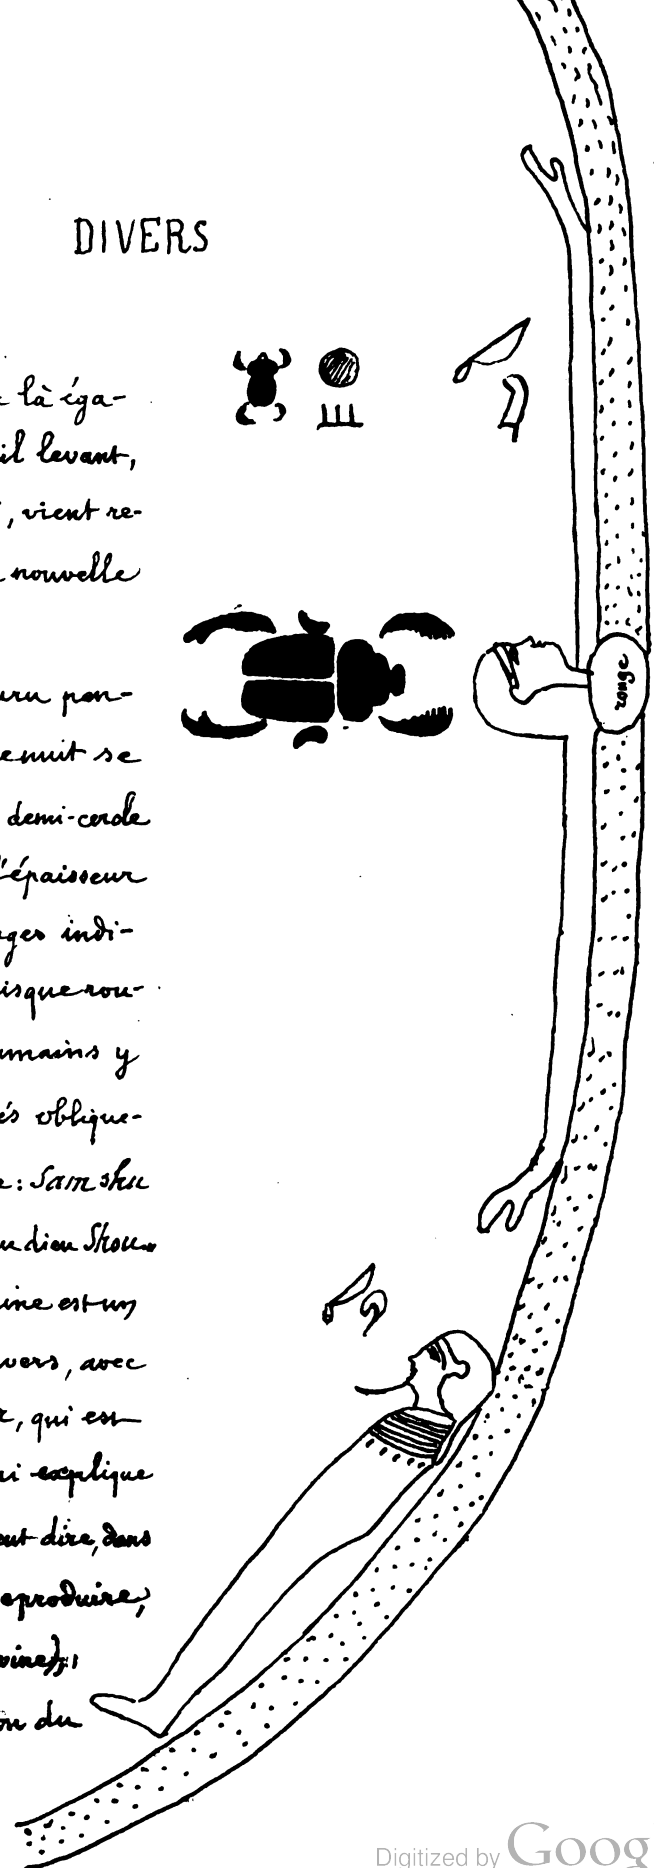 DIVERS
là éga-
il levant,
, vient re-
nouvelle
pen-
enuit se
demi-cercle
l'épaisseur
ges indi-
isque rou-
umains y
és oblique-
e : Samshu
u dieu Shou..
ine est un
vers, avec
r, qui est
ui explique
eut dire, dans
eproduire,
vine);
on du
rouge
Digitized by Goog